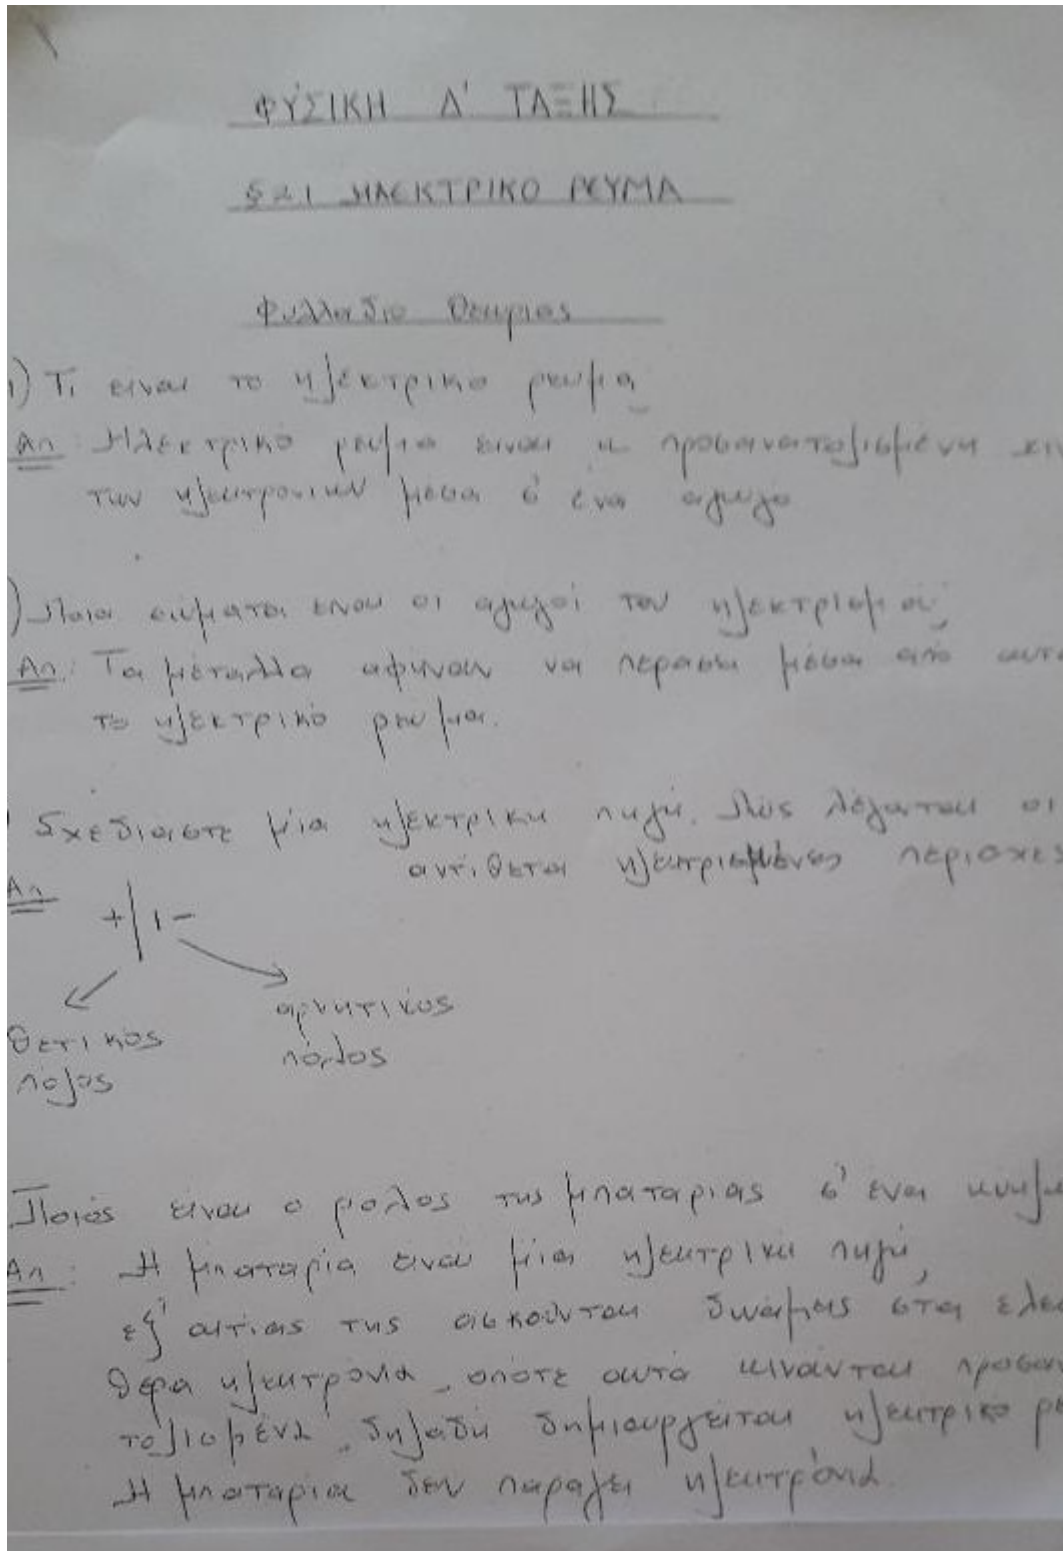 ΦΥΣΙΚΗ Δ' ΤΑΞΗΣ
§ 2.1 ΗΛΕΚΤΡΙΚΟ ΡΕΥΜΑ
Φυλλαδιο Θεωριας
1) Τι ειναι το ηλεκτρικο ρευμα;
Απ: Ηλεκτρικό ρευμα ειναι η προσανατολισμένη κιν
των ηλεκτρονιων μεσα σ' ένα αγωγο
) Ποια σώματα ειναι οι αγωγοί του ηλεκτρισμού;
Απ: Τα μέταλλα αφήνουν να περασει μέσα από αυτα
το ηλεκτρικό ρευμα.
) Σχεδιαστε μία ηλεκτρικη πηγή. Πώς λέγονται οι
αντίθετα ηλεκτρισμένες περιοχες
Απ
+ -
θετικός
πόλος
αρνητικος
πόλος
Ποιός είναι ο ρολος της μπαταριας σ' ένα κυκλω
Απ: Η μπαταρία ειναι μία ηλεκτρικη πηγή,
εξ' αιτιας της ασκούνται δυνάμεις στα ελευ
θερα ηλεκτρόνια, οπότε αυτά κινούνται προσαν
τολισμένα, δηλαδή δημιουργείται ηλεκτρικο ρε
Η μπαταρία δεν παραγει ηλεκτρόνια.